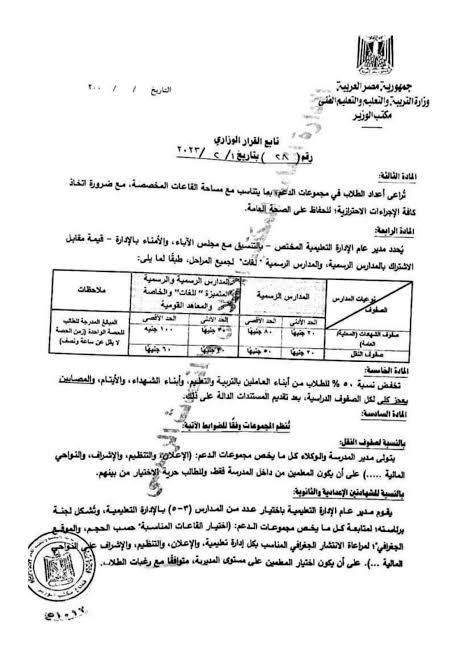 جمهورية مصر العربية
وزارة التربية والتعليم والتعليم الفنى
مكتب الوزير
التاريخ / / ٢٠٠
تابع القرار الوزاري
رقم ( ٢٨ ) بتاريخ ١ / ٢ / ٢٠٢٣
المادة الثالثة:
تُراعى أعداد الطلاب في مجموعات الدعم، بما يتناسب مع مساحة القاعات المخصصة، مع ضرورة اتخاذ
كافة الإجراءات الاحترازية؛ للحفاظ على الصحة العامة.
المادة الرابعة:
يُحدد مدير عام الإدارة التعليمية المختص - بالتنسيق مع مجلس الآباء، والأمناء بالإدارة - قيمة مقابل
الاشتراك بالمدارس الرسمية، والمدارس الرسمية "لغات" لجميع المراحل، طبقًا لما يلى:
نوعيات المدارس
الصفوف
المدارس الرسمية
المدارس الرسمية والرسمية
المتميزة "للغات" والخاصة
والمعاهد القومية
ملاحظات
الحد الأدنى الحد الأقصى الحد الأدنى الحد الأقصى
صفوف الشهادات (المحلية/ العامة) ٢٠ جنيهًا ٨٠ جنيهًا جنيهًا ١٠٠ جنيه
صفوف النقل ٢٠ جنيهًا ٥٠ جنيهًا جنيهًا ٦٠ جنيهًا
المبالغ المدرجة للطالب
للحصة الواحدة (زمن الحصة
لا يقل عن ساعة ونصف)
المادة الخامسة:
تخفض نسبة ٥٠ % للطلاب من أبناء العاملين بالتربية والتعليم، وأبناء الشهداء، والأيتام، والمصابين
بعجز كلى لكل الصفوف الدراسية، بعد تقديم المستندات الدالة على ذلك.
المادة السادسة:
تُنظم المجموعات وفقًا للضوابط الآتية:
بالنسبة لصفوف النقل:
يتولى مدير المدرسة والوكلاء كل ما يخص مجموعات الدعم: (الإعلان، والتنظيم، والإشراف، والنواحي
المالية .....) على أن يكون المعلمين من داخل المدرسة فقط، وللطالب حرية الاختيار من بينهم.
بالنسبة للشهادتين الإعدادية والثانوية:
يقوم مدير عام الإدارة التعليمية باختيار عدد من المدارس (٣-٥) بالإدارة التعليمية، وتُشكل لجنة
برئاسته؛ لمتابعة كل ما يخص مجموعات الدعم: (اختيار القاعات المناسبة" حسب الحجم، والموقع
الجغرافي"؛ لمراعاة الانتشار الجغرافي المناسب بكل إدارة تعليمية، والإعلان، والتنظيم، والإشراف على النواحي
المالية ...). على أن يكون اختيار المعلمين على مستوى المديرية، متوافقًا مع رغبات الطلاب.